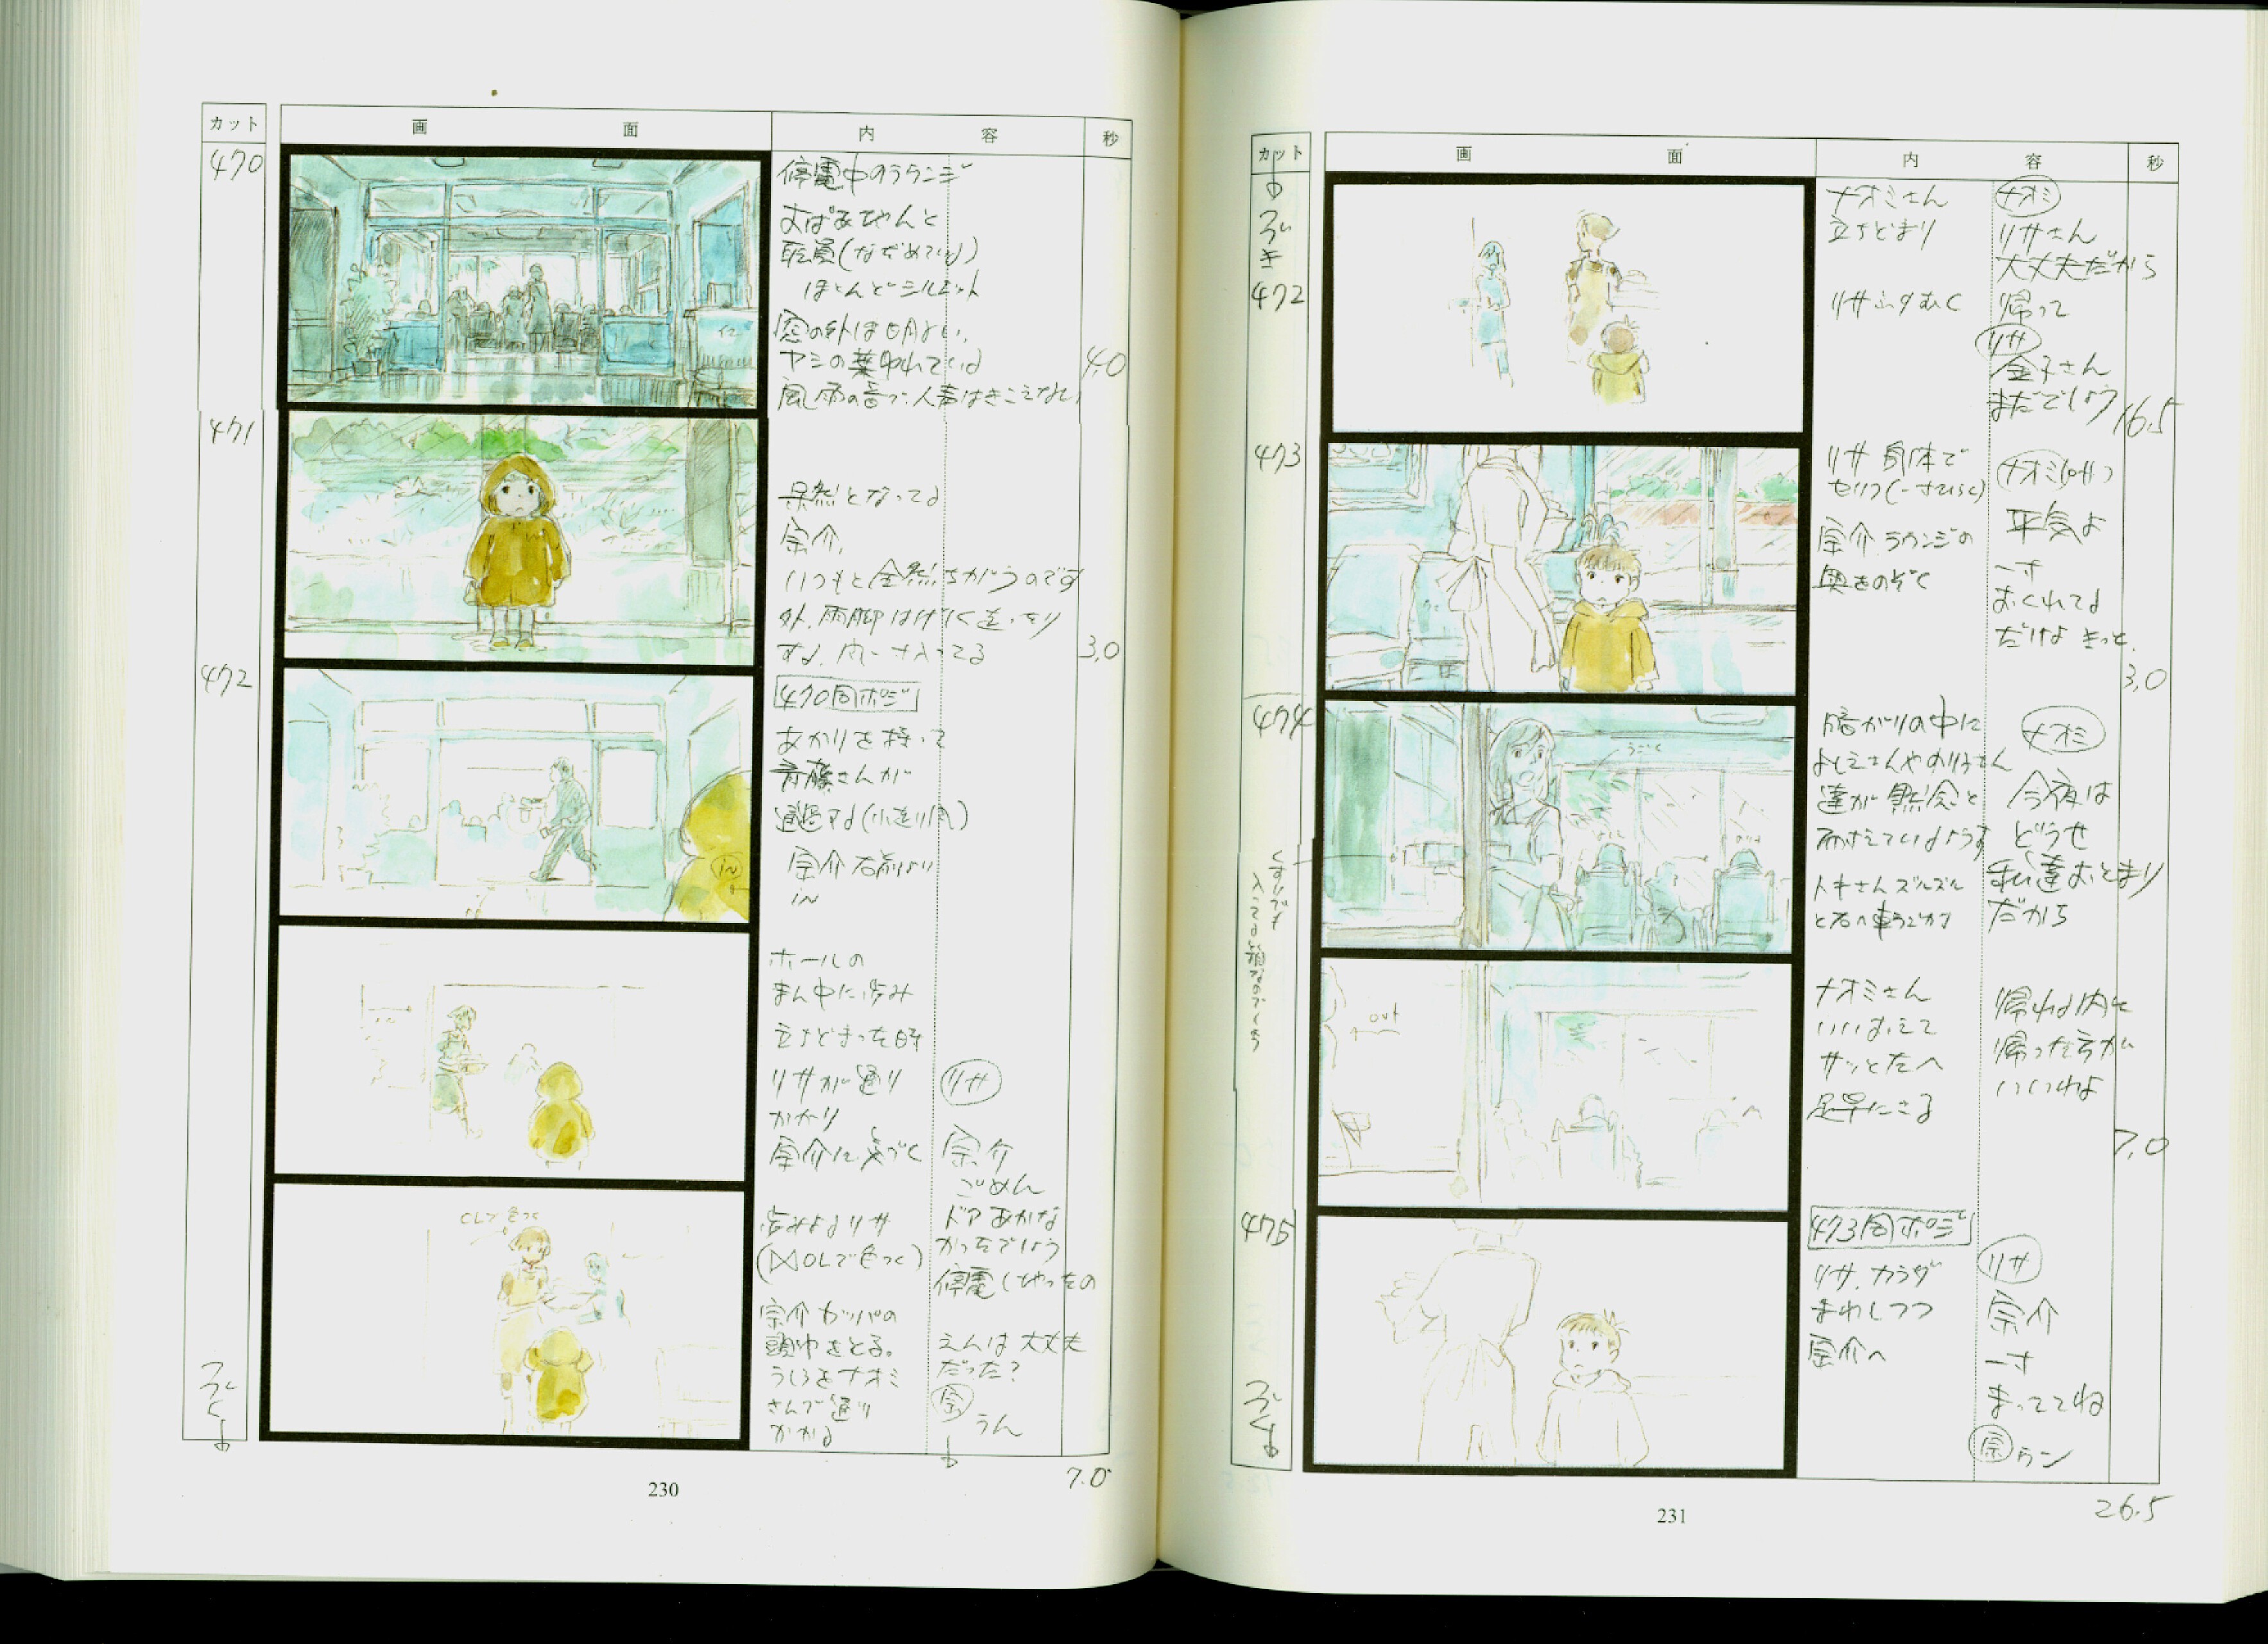 カット 画 面 内 容 秒
470
停電中のラウンジ
おばあちゃんと
職員(なだめている)
ほとんどシルエット
窓の外は明るい、
ヤシの葉ゆれている
風雨の音で人声はきこえない
4.0
471
呆然となってる
宗介、
いつもと全然ちがうのです
外、雨脚はげしく走ったり
する、
3.0
472
470同ポジ
あかりを持って
斉藤さんが
通過する(小走り風)
宗介右前より
in
in
ホールの
まん中に歩み
立ちどまった時
リサが通り
かかり
宗介に気づく
リサ
宗介
ごめん
ドアあかな
かったでしょう
停電しちゃったの
OLで色つく
歩みよるリサ
(OLで色つく)
宗介カッパの
頭巾をとる。
うしろをナオミ
さんが通り
かかる
えんは大丈夫
だった?
宗
うん
つづく
7.0
230
カット 画 面 内 容 秒
つづき
472
ナオミさん
立ちどまり
リサふりむく
ナオミ
リサさん
大丈夫だから
帰って
リサ
金子さん
まだでしょう
16.5
473
リサ身体で
セリフ
宗介、ラウンジの
奥をのぞく
ナオミ(off)
平気よ
一寸
おくれてる
だけよ きっと、
3.0
474
うごく
暗がりの中に
よしえさんやのり子さん
達が黙念と
耐えているようす
トキさんズルズル
と右へ車うごかす
ナオミ
今夜は
どうせ
私達おとまり
だから
out
ナオミさん
いいおえて
サッと左へ
足早にさる
帰れる内に
帰った方が
いいわよ
7.0
475
473同ポジ
リサ、カラダ
まわしつつ
宗介へ
リサ
宗介
一寸
まっててね
宗
ウン
つづく
26.5
231